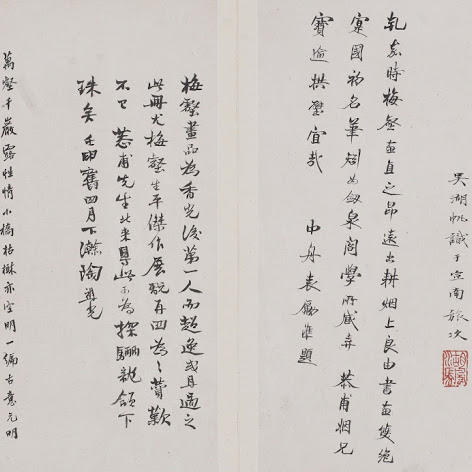 吳湖帆識于宣南旅次
乾嘉時梅壑畫直之昂遠出耕烟上良由書畫雙絕
寔國初名筆矧為劍泉閣學所藏弆 恭甫烟兄
寶逾拱璧宜哉 中舟袁勵準題
梅壑畫品為香光後第一人而超逸或且過之
此冊尤梅壑生平傑作展翫再四為之贊歎
不已 恭甫先生北來得此可為探驪龍頷下
珠矣壬申舊四月下澣陶祖光
萬壑千巖露性情小橋枯樹亦空明一編古意元明